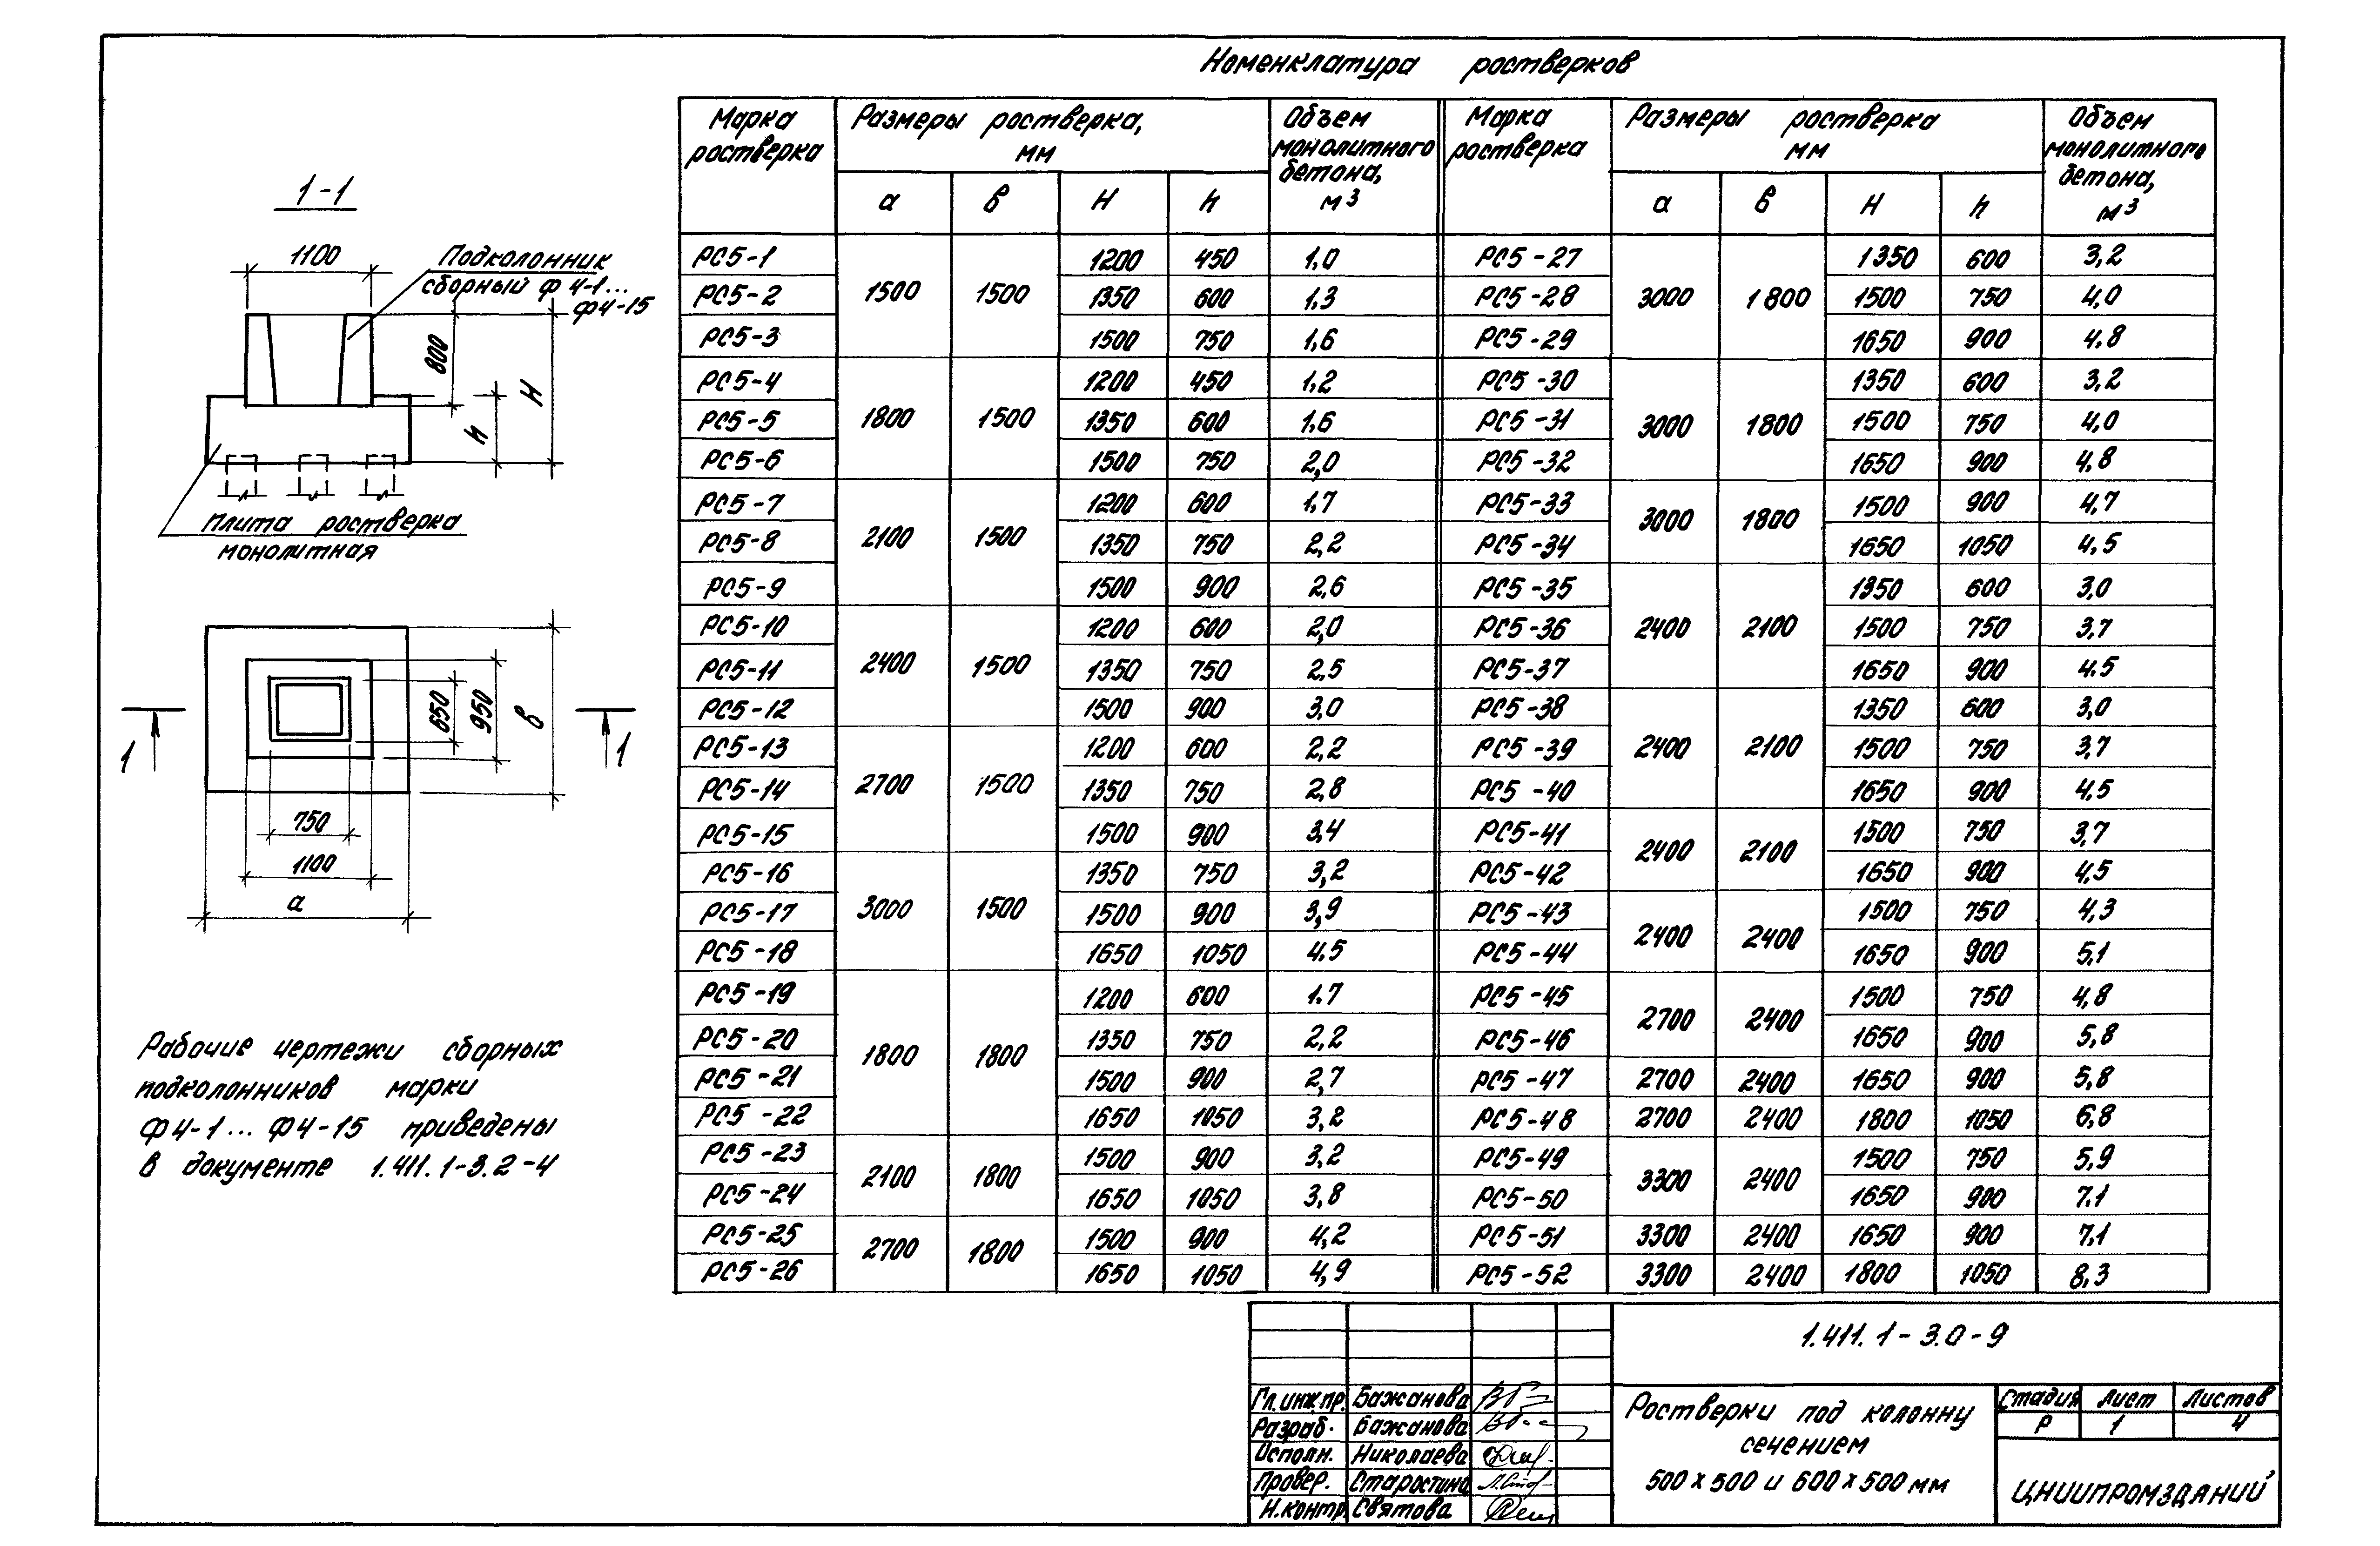 Номенклатура ростверков
1-1
1100
Подколонник
сборный Ф 4-1...
Ф4-15
800
H
h
Плита ростверка
монолитная
650
950
в
1
1
750
1100
а
Рабочие чертежи сборных
подколонников марки
Ф4-1... Ф4-15 приведены
в документе 1.411.1-3.2-4
Марка ростверка Размеры ростверка, мм Объем монолитного бетона, м3 Марка ростверка Размеры ростверка мм Объем монолитного бетона, м3
а в H h а в H h
РС5-1 1500 1500 1200 450 1,0 РС5-27 3000 1800 1350 600 3,2
РС5-2 1350 600 1,3 РС5-28 1500 750 4,0
РС5-3 1500 750 1,6 РС5-29 1650 900 4,8
РС5-4 1800 1500 1200 450 1,2 РС5-30 3000 1800 1350 600 3,2
РС5-5 1350 600 1,6 РС5-31 1500 750 4,0
РС5-6 1500 750 2,0 РС5-32 1650 900 4,8
РС5-7 2100 1500 1200 600 1,7 РС5-33 3000 1800 1500 900 4,7
РС5-8 1350 750 2,2 РС5-34 1650 1050 4,5
РС5-9 1500 900 2,6 РС5-35 2400 2100 1350 600 3,0
РС5-10 2400 1500 1200 600 2,0 РС5-36 1500 750 3,7
РС5-11 1350 750 2,5 РС5-37 1650 900 4.5
РС5-12 1500 900 3,0 РС5-38 2400 2100 1350 600 3,0
РС5-13 2700 1500 1200 600 2,2 РС5-39 1500 750 3,7
РС5-14 1350 750 2,8 РС5-40 1650 900 4,5
РС5-15 1500 900 3,4 РС5-41 2400 2100 1500 750 3,7
РС5-16 3000 1500 1350 750 3,2 РС5-42 1650 900 4,5
РС5-17 1500 900 3,9 РС5-43 2400 2400 1500 750 4,3
РС5-18 1650 1050 4.5 РС5-44 1650 900 5,1
РС5-19 1800 1800 1200 600 1.7 РС5-45 2700 2400 1500 750 4,8
РС5-20 1350 750 2,2 РС5-46 1650 900 5,8
РС5-21 1500 900 2,7 РС5-47 2700 2400 1650 900 5,8
РС5-22 1650 1050 3,2 РС5-48 2700 2400 1800 1050 6,8
РС5-23 2100 1800 1500 900 3,2 РС5-49 3300 2400 1500 750 5,9
РС5-24 1650 1050 3,8 РС5-50 1650 900 7.1
РС5-25 2700 1800 1500 900 4,2 РС5-51 3300 2400 1650 900 7,1
РС5-26 1650 1050 4,9 РС5-52 3300 2400 1800 1050 8,3
1.411.1-3.0-9
Гл.инж.пр. Бажанова
Разраб. Бажанова
Исполн. Николаева
Провер. Старостина
Н.контр. Святова
Ростверки под колонну
сечением
500 х 500 и 600 х 500 мм
Стадия Лист Листов
Р 1 4
ЦНИИПРОМЗДАНИЙ